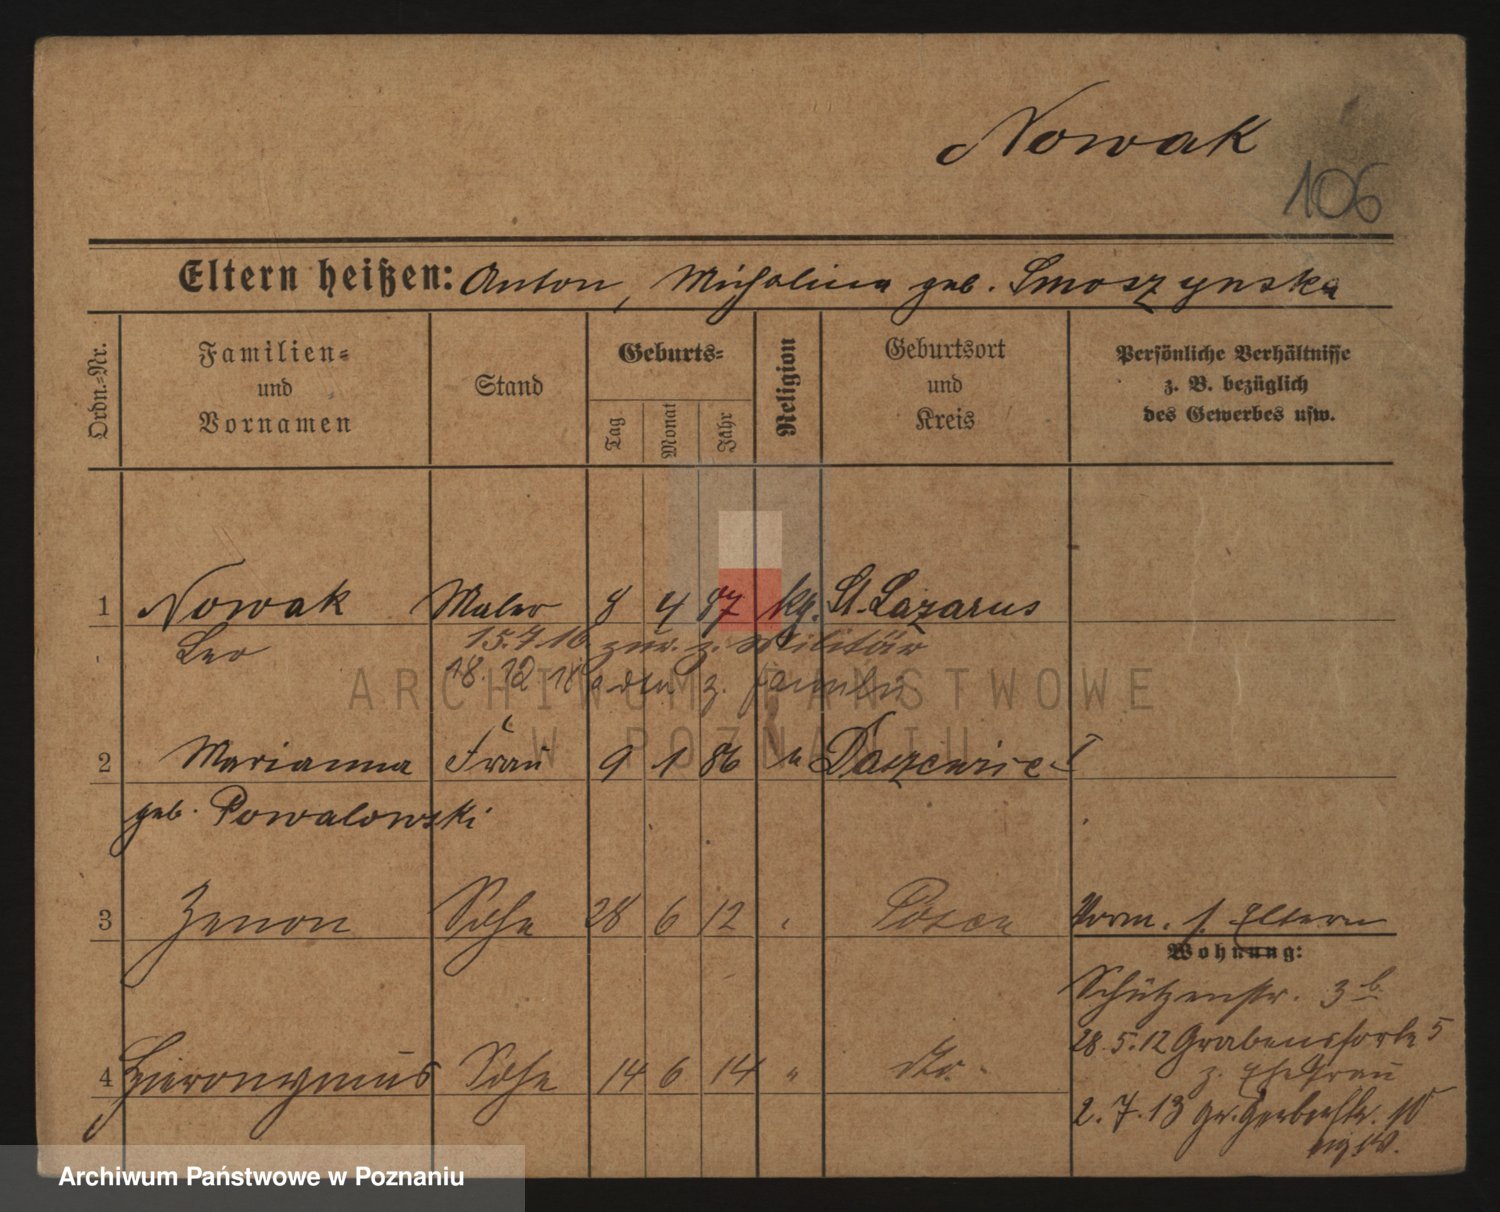 Nowak
106
Eltern heißen: Anton, Michalina geb. Smoszynska
Ordn.=Nr.
Familien= und Vornamen
Stand
Geburts=
Tag
Monat
Jahr
Religion
Geburtsort und Kreis
Persönliche Verhältnisse
z. B. bezüglich
des Gewerbes usw.
1 Nowak Maler 8 4 87 kg. St. Lazarus
Leo 15.4.16 zur. z. Militär
18.12.18 z. Familie
2 Marianna Frau 9 1 86 "
geb. Powalowski
3 Zenon Sohn 28 6 12 " Posen Vorm. s. Eltern
Wohnung:
Schützenstr. 3b
4 Hieronymus Sohn 14 6 14 " dto.
28.5.12 Grabenpforte 5
z. Ehefrau
2.7.13 Gr. Gerberstr. 10
ARCHIWUM PAŃSTWOWE
W POZNANIU
Archiwum Państwowe w Poznaniu